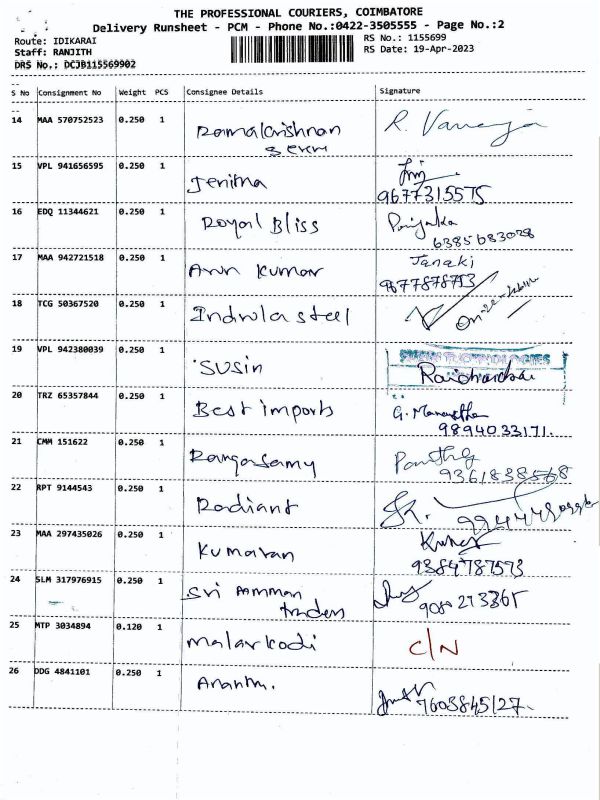 THE PROFESSIONAL COURIERS, COIMBATORE
Delivery Runsheet - PCM - Phone No.:0422-3505555 - Page No.:2
Route: IDIKARAI
RS No.: 1155699
Staff: RANJITH
RS Date: 19-Apr-2023
DRS No.: DCJB115569902
S No Consignment No Weight PCS Consignee Details Signature
14 MAA 570752523 0.250 1 Ramakrishnan R. Vanaja
15 VPL 941656595 0.250 1 Jenima
9677315575
16 EDQ 11344621 0.250 1 Royal Bliss Priyanka
6385683028
17 MAA 942721518 0.250 1 Arun Kumar Janaki
9677878753
18 TCG 50367520 0.250 1 Indrola steel
19 VPL 942380039 0.250 1 SUSIN
20 TRZ 65357844 0.250 1 Best imports G.
9894033171.
21 CMM 151622 0.250 1 Rangasamy
9361838568
22 RPT 9144543 0.250 1 Radiant
23 MAA 297435026 0.250 1 Kumaran
9384787573
24 SLM 317976915 0.250 1 Sri Amman
traders
25 MTP 3034894 0.120 1 malarkodi C/N
26 DDG 4841101 0.250 1 Ananth.
7603845127.